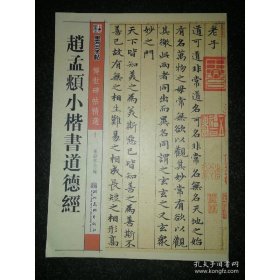 老子
道可道非常道名可名非常名無名天地之始
有名萬物之母常無欲以觀其妙常有欲以觀
其徼此兩者同出而異名同謂之玄玄之又玄眾
妙之門
天下皆知美之為美斯惡已皆知善之為善斯不
善已故有無之相生難易之相成長短之相形高
墨点字帖
傳世碑帖精選
趙孟頫小楷書道德經